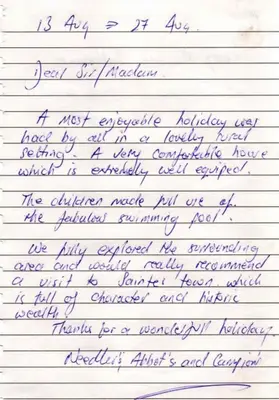 13 Aug ⇒ 27 Aug.
Dear Sir/Madam.
A most enjoyable holiday was
had by all in a lovely rural
setting. A very comfortable house
which is extremely well equiped.
The children made full use of
the fabulous swimming pool.
We fully explored the surrounding
area and would really recommend
a visit to Sainter town which
is full of character and historic
wealth
Thanks for a wonderfull holiday.
Needler's, Abbot's and Campion